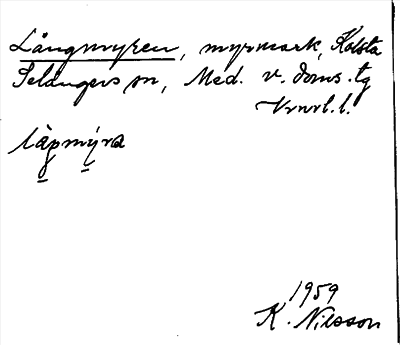 Långmyren, myrmark, Kolsta
Selångers sn, Med. v. doms. tg
Vrnrl. l.
låŋmýra
1959
K. Nilsson